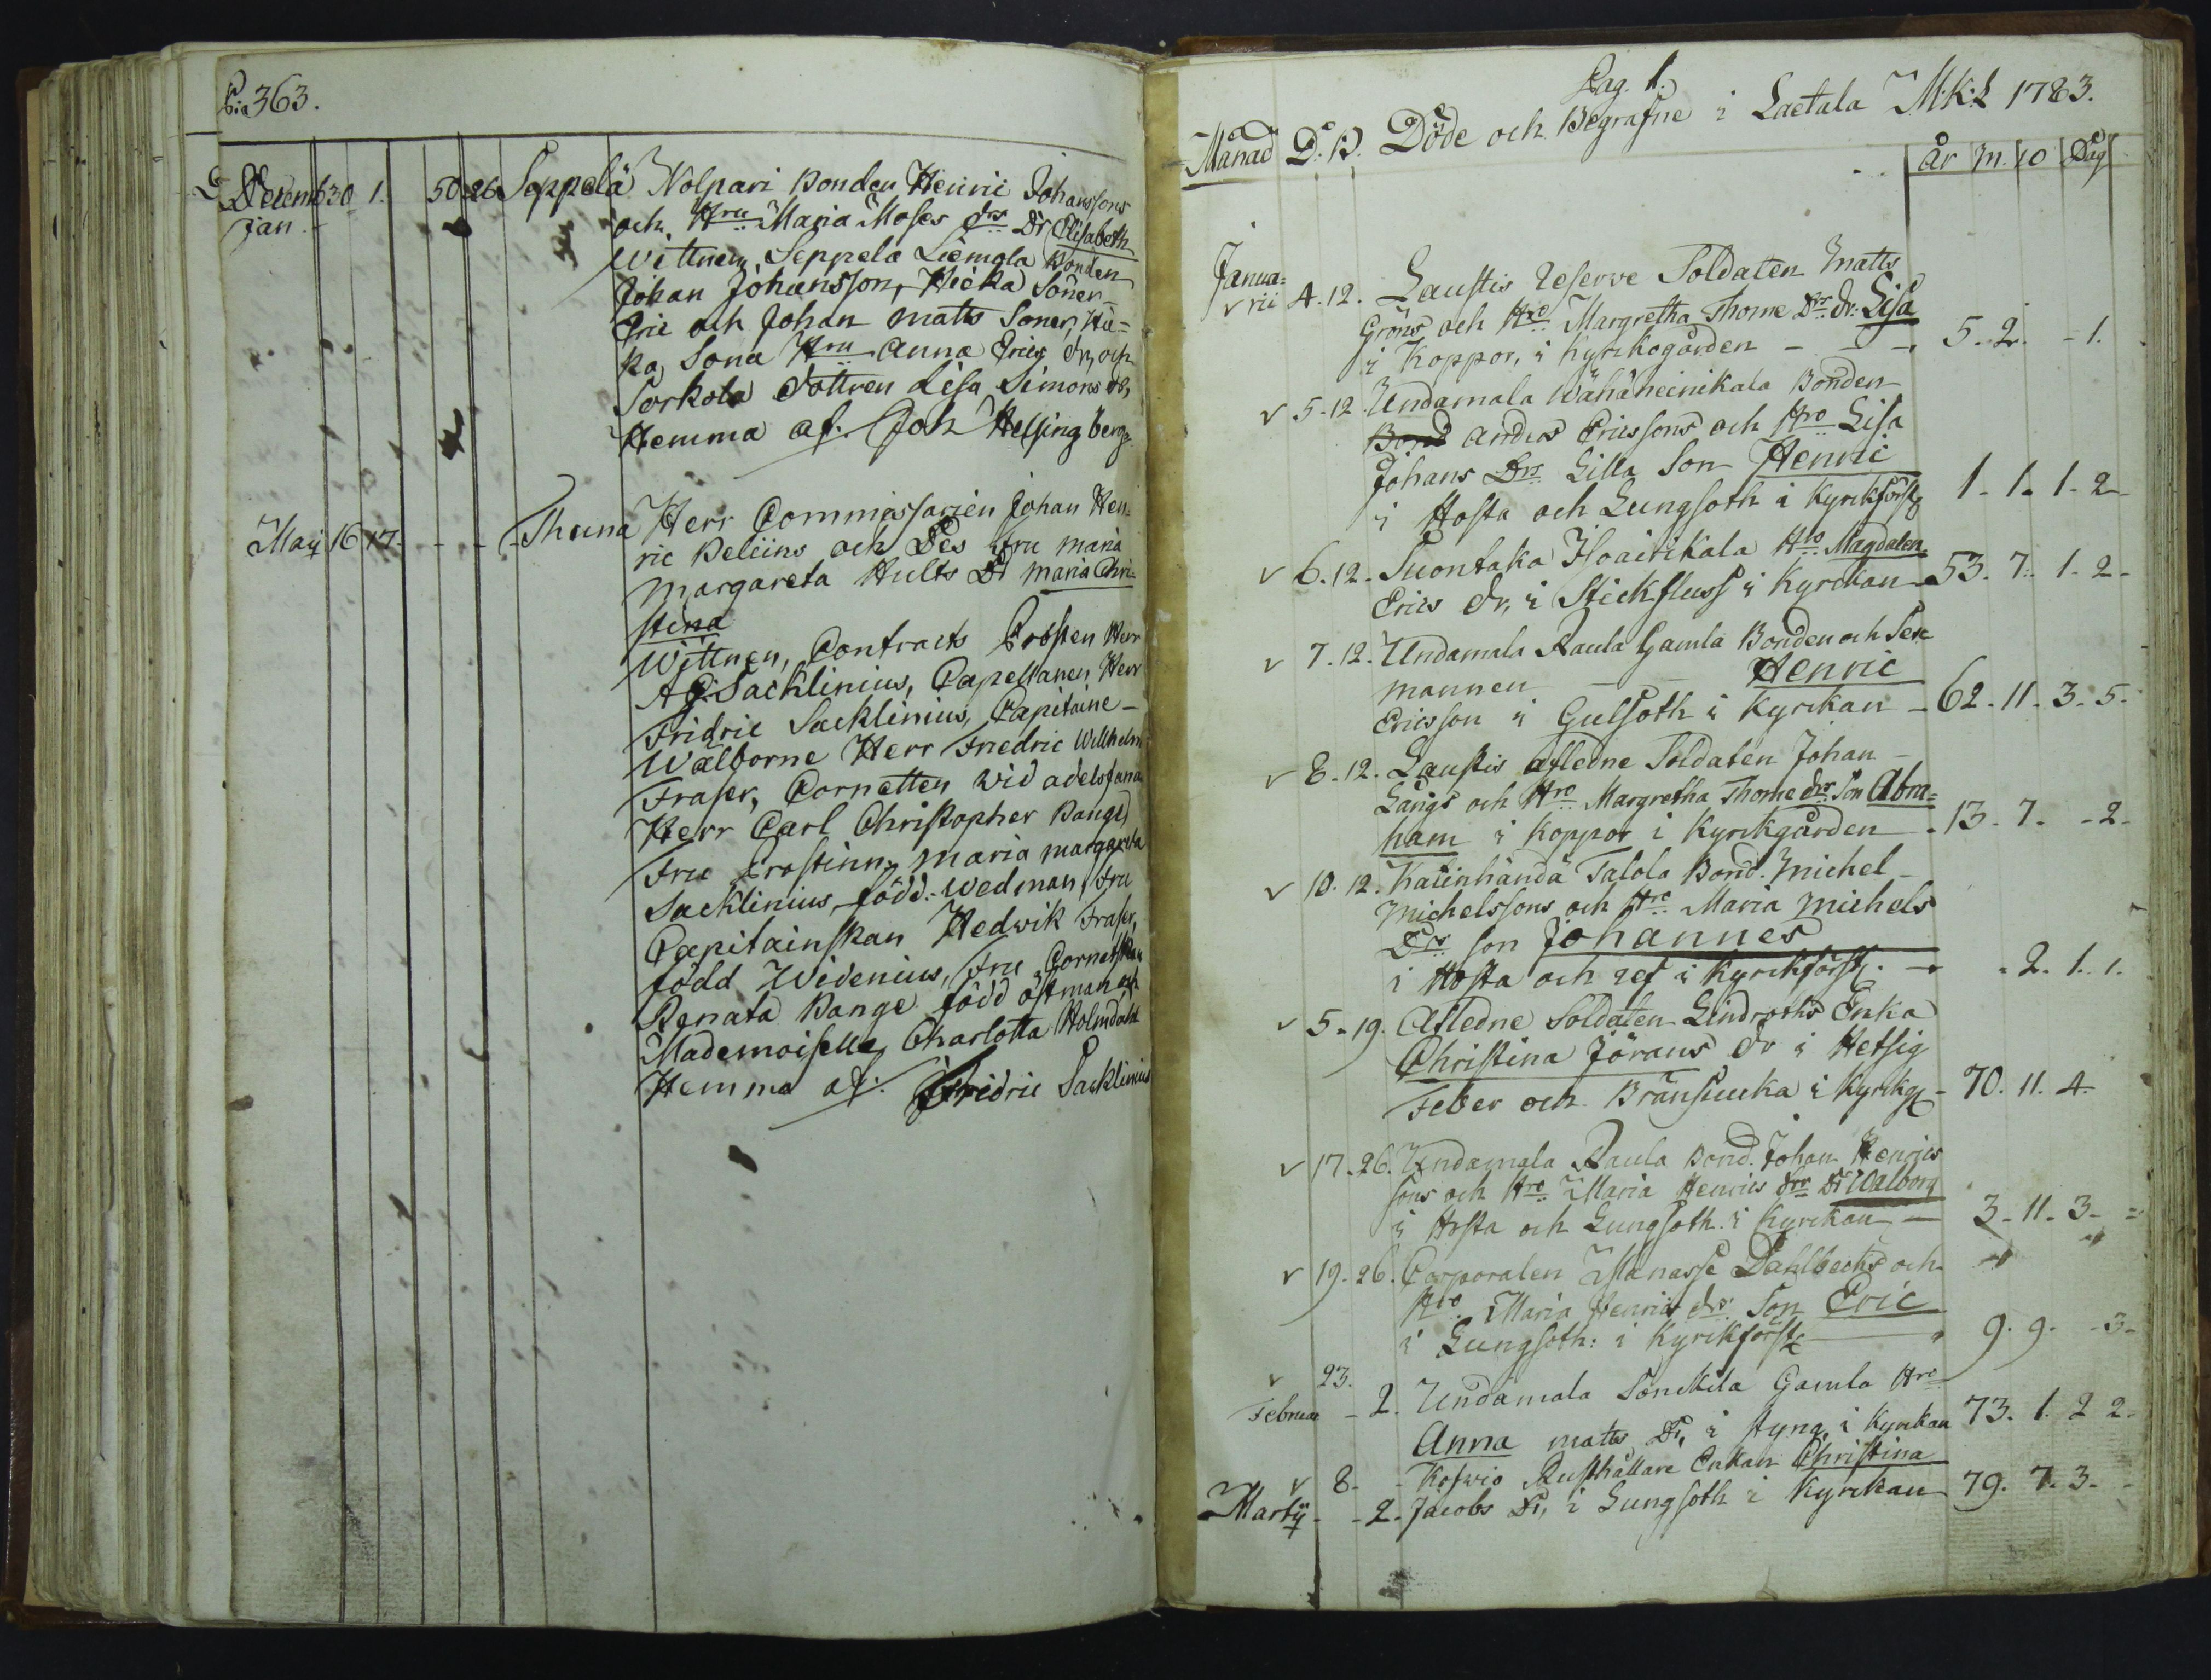 363.
Decemb 30 1. 50 26 Seppelä Nolpari Bonden Henric Johanssons
Jan. och Hru Maria Moses drs Dr Elisabeth
Wittnen, Seppela Liemola Bonden
Johan Johansson, Hicka Söner
Eric och Johan Matts Söner, Hic=
ka, Sona Hru Anna Erics dr, och
Sorkola dottren Lisa Simons dr,
Hemma af. Joh Helsingberg
Maij 16 17 - - - Thuna Herr Commissarien Johan Hen=
ric Beliins och Des Fru Maria
Margareta Hults Dr Maria Chri=
stina
Wittnen, Contracts Probsten Herr
A G. Sacklinius, Capellanen Herr
Fridric Sacklinius, Capitaine
Wälborne Herr Fredric Willhelm
Fraser, Cornetten wid adelsfana
Herr Carl Christopher Bange,
Fru Prostinn, Maria Margareta
Sacklinius, född: Wedman, Fru
Capitainskan Hedwik Fraser,
född Widenius, Fru Cornetskan
Renata Bange född östman och
Mademoiselle Charlotta Holmdahl
Hemma af. Fridric Sacklinius
Pag. 1.
Månad D. B. Döde och Begrafne i Laetala M:K:L 1783.
År M. 10 Dag
Janua=
rii 4. 12. Laustis Reserve Soldaten Matts
Gröns och Hro Margretha Thome Drs dr. Lisa
i Koppor, i Kyrkogården - - 5. 2. - 1.
5. 12 Undamala Wähäheinikala Bonden
Andrs Ericssons och Hro Lisa
Johans Drs Lilla Son Henric
i Hosta och Lungsoth i Kyrkförst 1. 1. 1. 2
6. 12. Suontaka Isoairikala Hro Magdalen
Erics dr, i Stickfluss i Kyrckan 53. 7. 1. 2
7. 12. Undamala Raula Gamla Bonden och Sex
mannen - - Henric
Ericsson i Gulsoth i Kyrckan - 62. 11. 3. 5.
8. 12. Laustis afledne Soldaten Johan
Långs och Hro Margretha Thome drs Son Abra=
ham i Koppor i Kyrckgården - 13. 7. - 2
10. 12. Kaiinhända Talola Bond. Michel
Michelssons och Hro Maria Michels
Drs son Johannes
i Hosta och ref i Kyrckförst. - . 2. 1. 1.
5. 19. Afledne Soldaten Lindroths Enka
Christina Jörans dr i Hetsig
Feber och Bränsiucka i Kyrckg - 70. 11. 4.
17. 26. Undamala Raula Bond. Johan Henrics
sons och Hro Maria Henrics drs Dr Walborg
i Hosta och Lungsoth i Kyrckan - 3. 11. 3. =
19. 26. Corporalen Manasse Dahlbecks och
Hro Maria Henrics drs Son Eric
i Lungsoth: i Kyrckförst 9. 9. - 3-
23.
Februar - 2. Undamala Sonckila Gamla Hro
Anna Matts Dr, i Styng, i Kyrckan 73. 1. 2 2.
8. - Kofwio Rusthållare Enkan Christina
Martij - 2. Jacobs Dr, i Lungsoth i Kyrckan 79. 7. 3. -